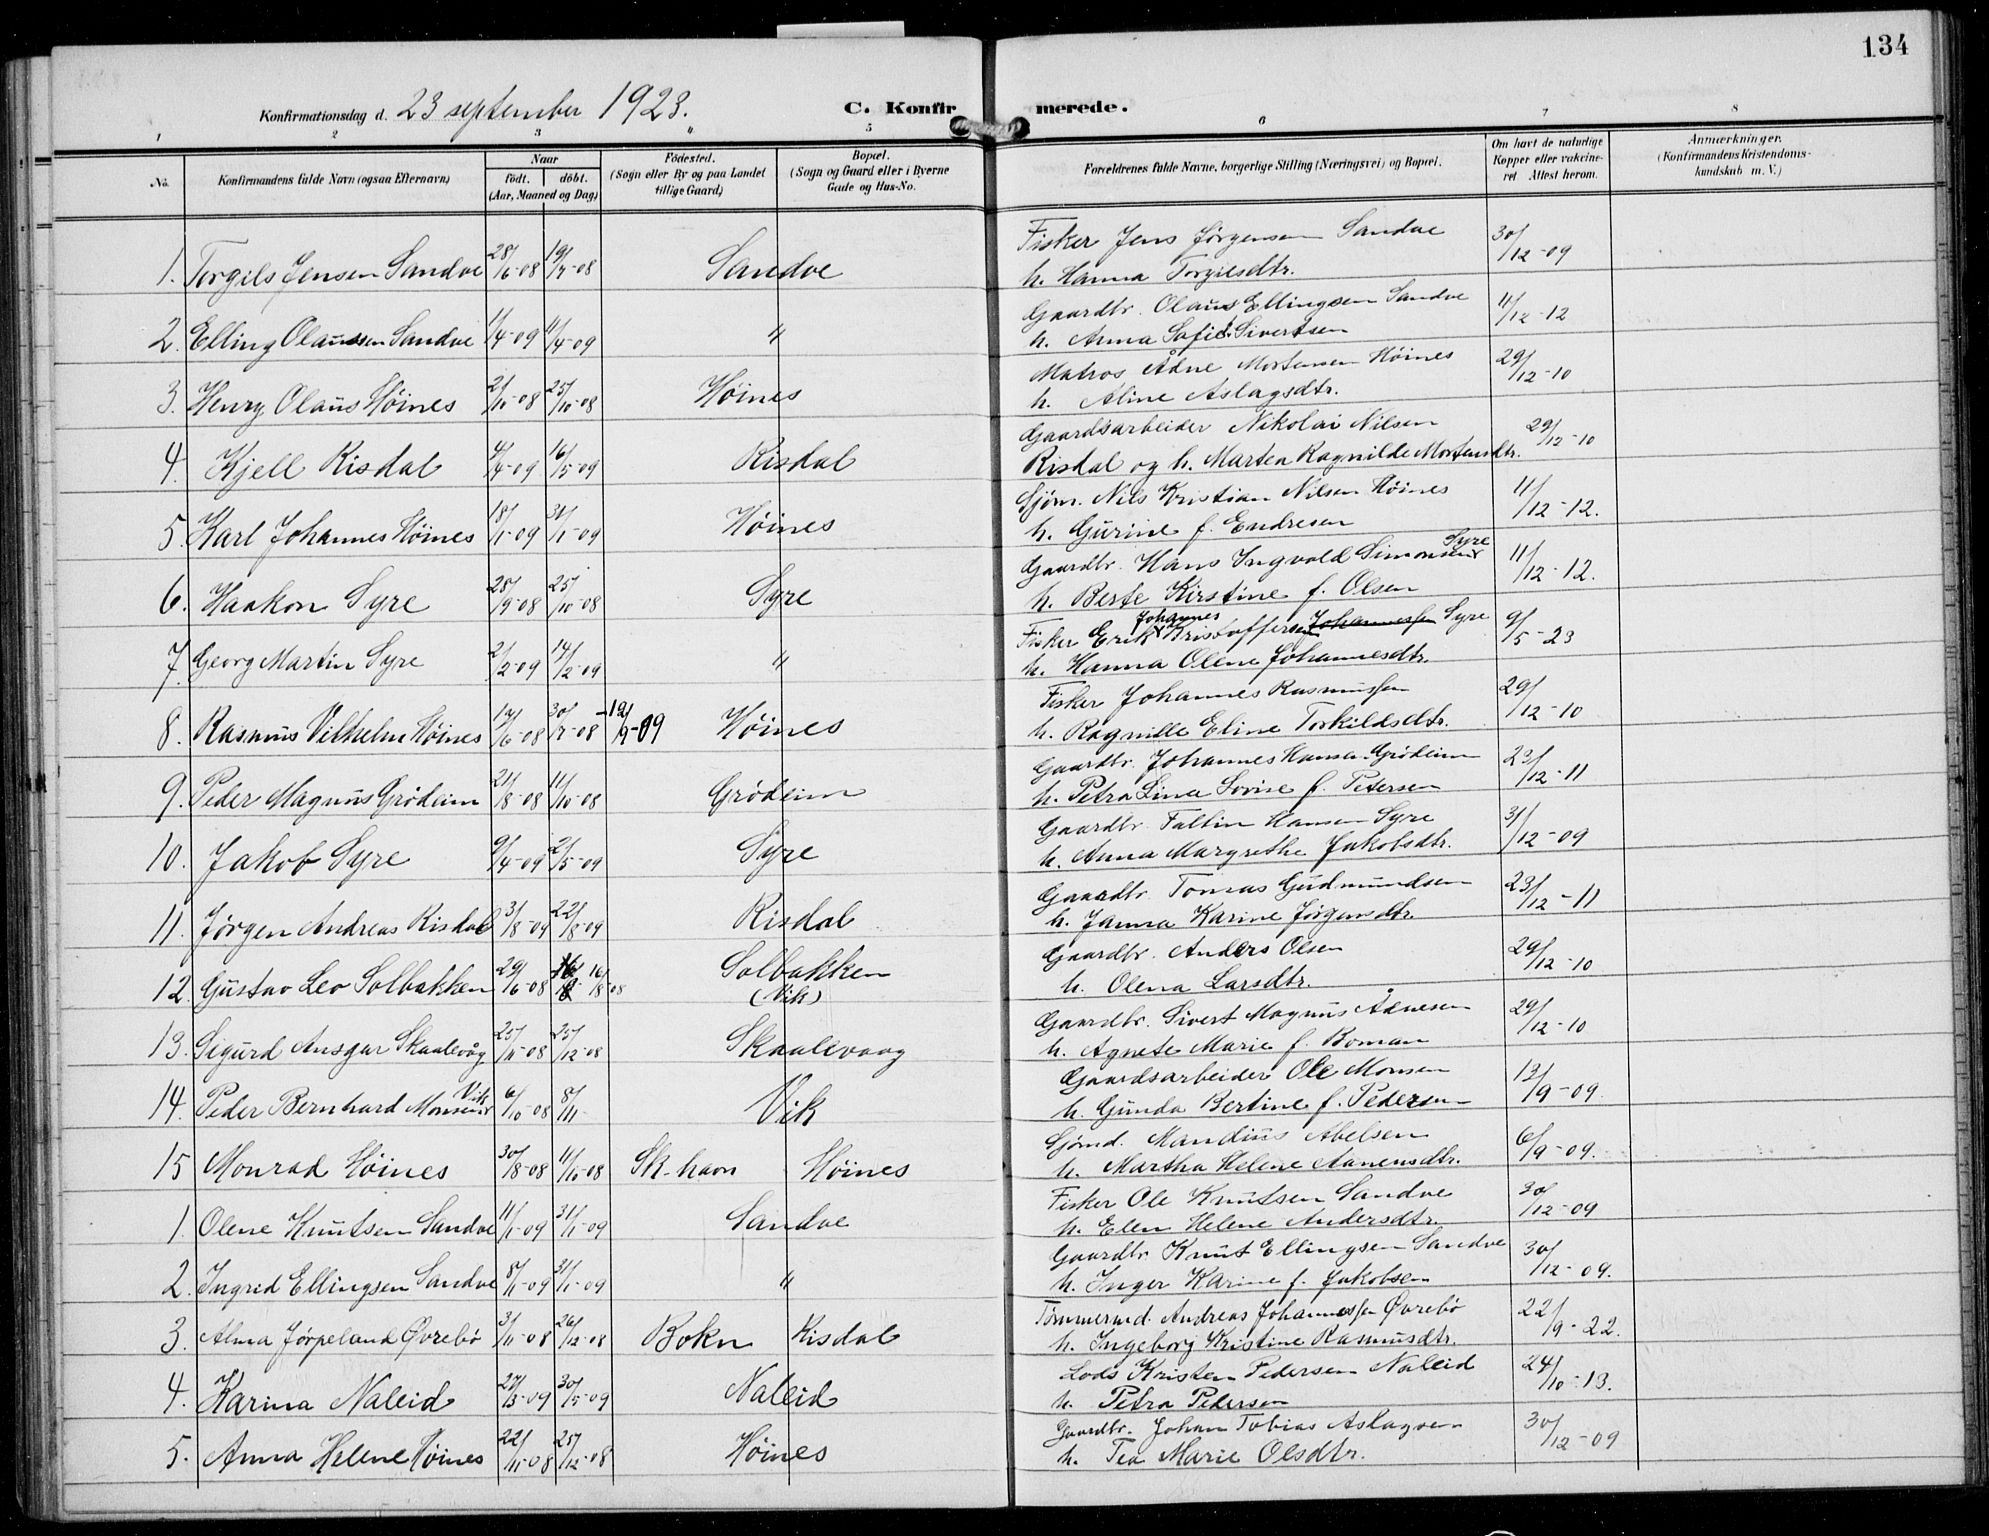 134
Konfirmationsdag d. 23 september 1923.
C. Konfirmerede.
1 2 3 4 5 6 7 8
No.
Konfirmandens fulde Navn (ogsaa Efternavn)
Naar
født. døbt.
(Aar, Maaned og Dag)
Fødested.
(Sogn eller By og paa Landet
tillige Gaard)
Bopæl.
(Sogn og Gaard eller i Byerne
Gade og Hus-No.
Forældrenes fulde Navne, borgerlige Stilling (Næringsvei) og Bopæl.
Om havt de naturlige
Kopper eller vakcine-
ret Attest herom.
Anmærkninger.
(Konfirmandens Kristendoms-
kundskab m. V.)
1. Torgils Jensen Sandve 28/6-08 19/7-08 Sandve
Fisker Jens Jørgensen Sandve 30/12-09
h. Hanna Torgilsdtr.
2. Elling Olaussen Sandve 1/4-09 11/4-09 "
Gaardbr. Olaus Ellingsen Sandve 11/12-12
h. Anna Sofie Sivertsen
3. Henry Olaus Høines 2/10-08 25/10-08 Høines
Matros Ådne Mortensen Høines 29/12-10
h. Aline Aslagsdtr.
4. Kjell Risdal 4/4-09 16/5-09 Risdal
Gaardsarbeider Nikolai Nilsen 29/12-10
Risdal og h. Martea Ragnilde Mortensdtr.
5. Karl Johannes Høines 18/1-09 31/1-09 Høines
Sjøm. Nils Kristian Nilsen Høines 11/12-12.
h. Gurine f. Endresen
6. Haakon Syre 28/9-08 25/10-08 Syre
Gaardbr. Hans Ingvald Simonsen Syre 11/12-12.
h. Berte Kirstine f. Olsen
7. Georg Martin Syre 2/2-09 14/2-09 "
Fisker Erik Johannes Kristoffersen Johannessen Syre 9/5-23
h. Hanna Olene Johannesdtr.
8. Rasmus Vilhelm Høines 17/6-08 30/7-08 -19 Høines
Fisker Johannes Rasmussen 29/12-10
h. Ragnille Eline Torkildsdtr.
9. Peder Magnus Grødeim 21/8-08 11/10-08 Grødeim
Gaardbr. Johannes Hansen Grødeim 23/12-11
h. Petra Lina Lovise f. Petersen
10. Jakob Syre 9/4-09 2/5-09 Syre
Gaardbr. Faltin Hansen Syre 31/12-09
h. Anna Margrethe Jakobsdtr.
11. Jørgen Andreas Risdal 3/8-09 22/8-09 Risdal
Gaardbr. Tomas Gudmundsen 23/12-11
h. Janna Karine Jørgensdtr.
12. Gustav Leo Solbakken 29/6-08 16/8-08 Solbakken
(Vik)
Gaardbr. Anders Olsen 29/12-10
h. Olena Larsdtr.
13. Sigurd Ansgar Skaalevåg 25/11-08 25/12-08 Skaalevaag
Gaardbr. Sivert Magnus Ådnesen 29/12-10
h. Agnete Marie f. Boman
14. Peder Bernhard Monsen Vik 6/10-08 8/11 Vik
Gaardsarbeider Ole Monsen 13/9-09.
h. Gunda Bertine f. Pedersen
15 Monrad Høines 30/8-08 11/10-08 Sk-havn Høines
Sjømd. Mandius Abelsen 6/9-09.
h. Martha Helene Aanensdtr.
1. Olene Knutsen Sandve 11/1-09 31/1-09 Sandve
Fisker Ole Knutsen Sandve 30/12-09
h. Elen Helene Andersdtr.
2. Ingrid Ellingsen Sandve 8/1-09 31/1-09 "
Gaardbr. Knut Ellingsen Sandve 30/12-09.
h. Inger Karine f. Jakobsen
3. Alma Jørpeland Øvrebø 3/11-08 26/12-08 Bokn Risdal
Tømmermd. Andreas Johannessen Øvrebø 22/9-22.
h. Ingeborg Kristine Rasmusdtr.
4. Karina Naleid 27/3-09 30/5-09 Naleid
Lods Kristen Pedersen Naleid 24/10-13.
h. Petra Pedersen
5. Anna Helene Høines 22/11-08 25/12-08 Høines
Gaardbr. Johan Tobias Aslagsen 30/12-09
h. Tea Marie Olsdtr.